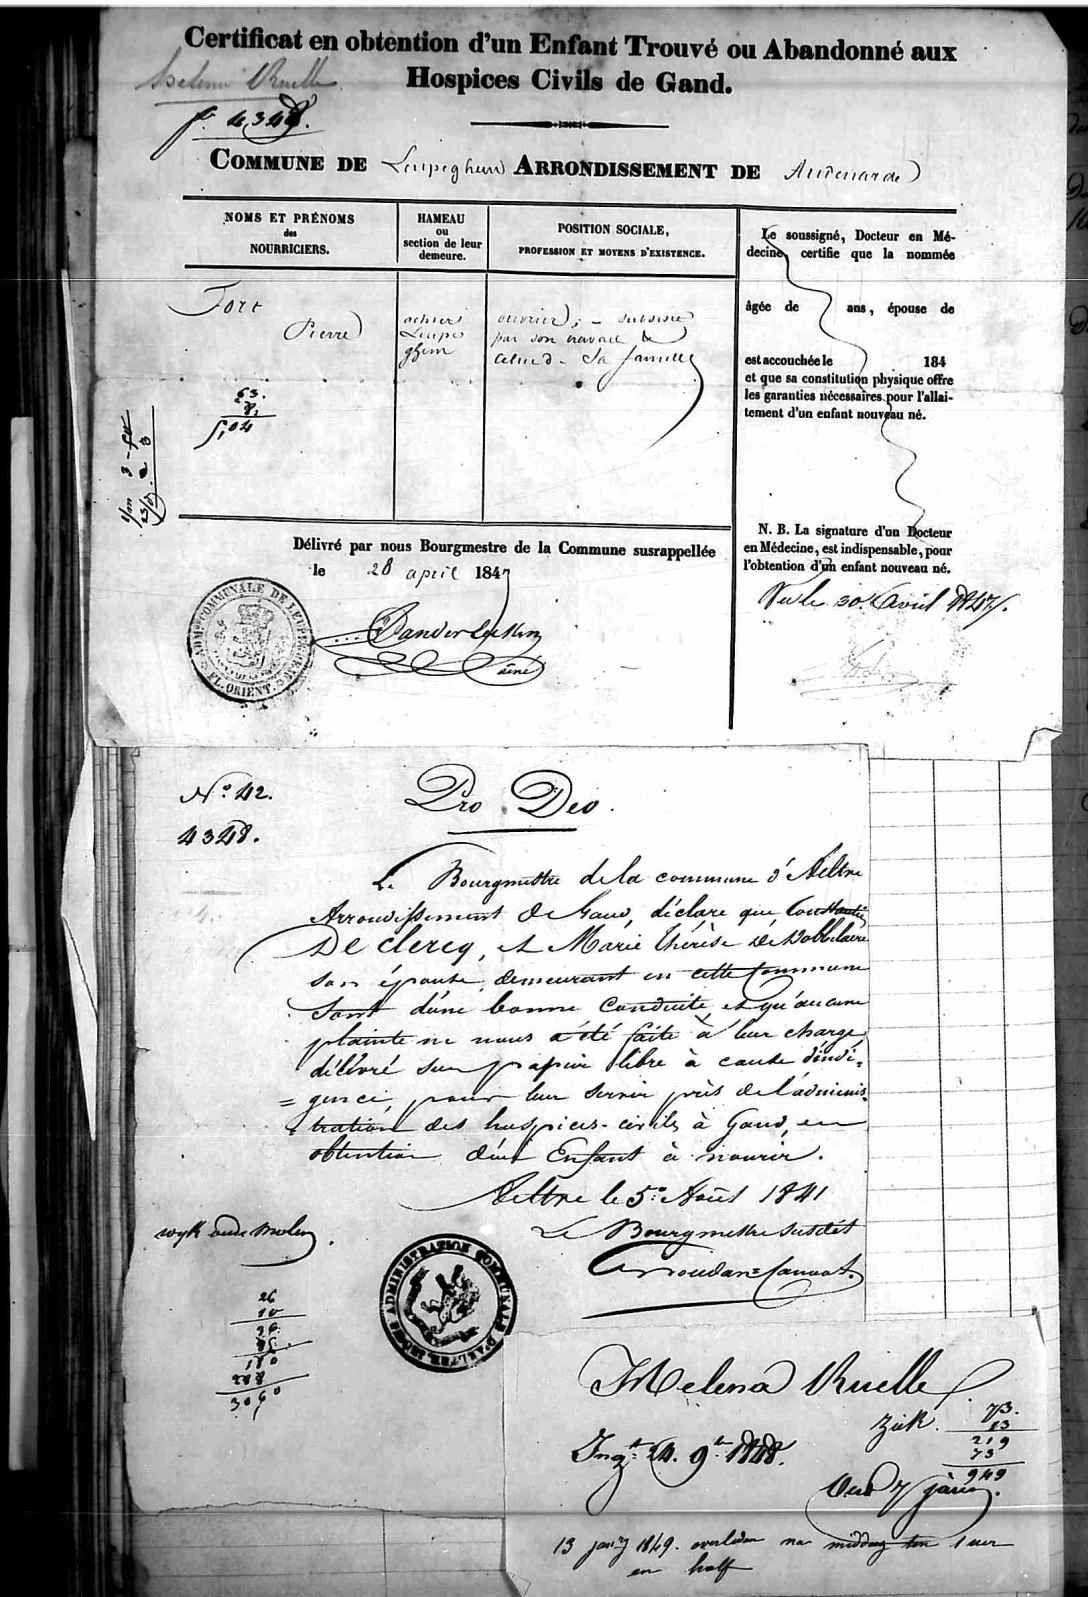 Certificat en obtention d'un Enfant Trouvé ou Abandonné aux
Hospices Civils de Gand.
Helena Ruelle
f. 4348.
COMMUNE DE Leupeghem ARRONDISSEMENT DE Audenarde
NOMS ET PRÉNOMS
des
NOURRICIERS.
HAMEAU
ou
section de leur
demeure.
POSITION SOCIALE,
PROFESSION ET MOYENS D'EXISTENCE.
Fort
Pierre
Leupe
ghem
ouvrier; - subsiste
par son travail &
celui d. sa famille
63.
8.
5,04
Le soussigné, Docteur en Mé-
decine, certifie que la nommée
âgée de ans, épouse de
est accouchée le 184
et que sa constitution physique offre
les garanties nécessaires pour l'allai-
tement d'un enfant nouveau né.
N. B. La signature d'un Docteur
en Médecine, est indispensable, pour
l'obtention d'un enfant nouveau né.
Vu le 30. Avril 1847.
Délivré par nous Bourgmestre de la Commune susrappellée
le 28 april 1847
ADMON COMMUNALE DE LEUPEGHEM
FL. ORIENT.
ainé
N.o 42.
4348.
Pro Deo.
Le Bourgmestre de la commune d'Aeltre
Arrondissement de Gand, déclare que Constantin
De Clercq, et Marie Thérèse De Dobbelaere
son épouse, demeurant en cette Commune
sont d'une bonne conduite, et qu'aucune
plainte ne nous a été faite à leur charge,
délivré sur papier libre à cause d'indi=
=gence, pour leur servir près de l'adminis-
tration des hospices-civils à Gand, en
obtention d'un Enfant à nourir.
Aeltre le 5. Août 1841
Le Bourgmestre susdit
wyk oude molen.
ADMINISTRATION COMMUNALE D'AELTRE
26
10
36
85.
180
288
3060
Helena Ruelle
ziek.
73.
13
219
73
949
Ing.t 24. 9.r 1848.
Oud 7 jaren.
13 jan.y 1849. overleden na middag ten 1 uer
en half